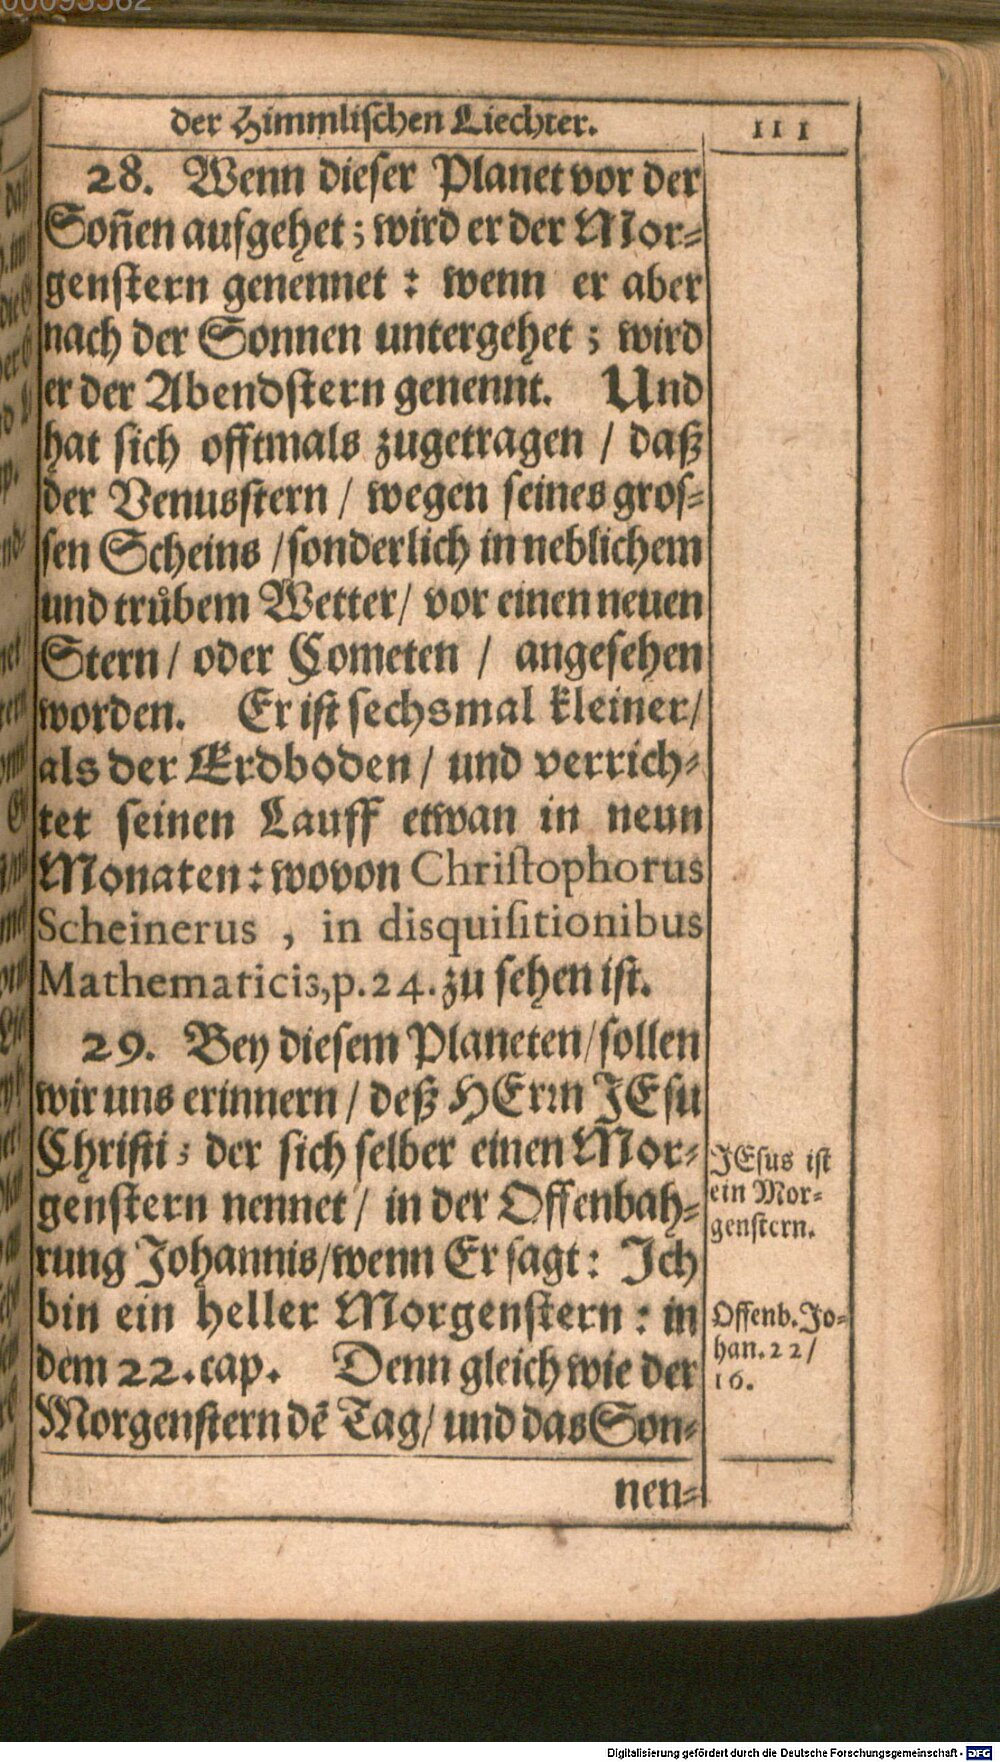 der Himmlischen Liechter. 111
28. Wenn dieser Planet vor der
Soñen aufgehet; wird er der Mor-
genstern genennet: wenn er aber
nach der Sonnen untergehet; wird
er der Abendstern genennt. Und
hat sich offtmals zugetragen / daß
der Venusstern / wegen seines gros-
sen Scheins / sonderlich in neblichem
und truͤbem Wetter / vor einen neuen
Stern / oder Cometen / angesehen
worden. Er ist sechsmal kleiner /
als der Erdboden / und verrich-
tet seinen Lauff etwan in neun
Monaten: wovon Christophorus
Scheinerus, in disquisitionibus
Mathematicis, p. 24. zu sehen ist.
29. Bey diesem Planeten / sollen
wir uns erinnern / deß HErrn JEsu
Christi; der sich selber einen Mor-
genstern nennet / in der Offenbah-
rung Johannis / wenn Er sagt: Ich
bin ein heller Morgenstern: in
dem 22. cap. Denn gleich wie der
Morgenstern dẽ Tag / und das Son-
nen-
JEsus ist
ein Mor-
genstern.
Offenb. Jo-
han. 22 /
16.
Digitalisierung gefördert durch die Deutsche Forschungsgemeinschaft - DFG